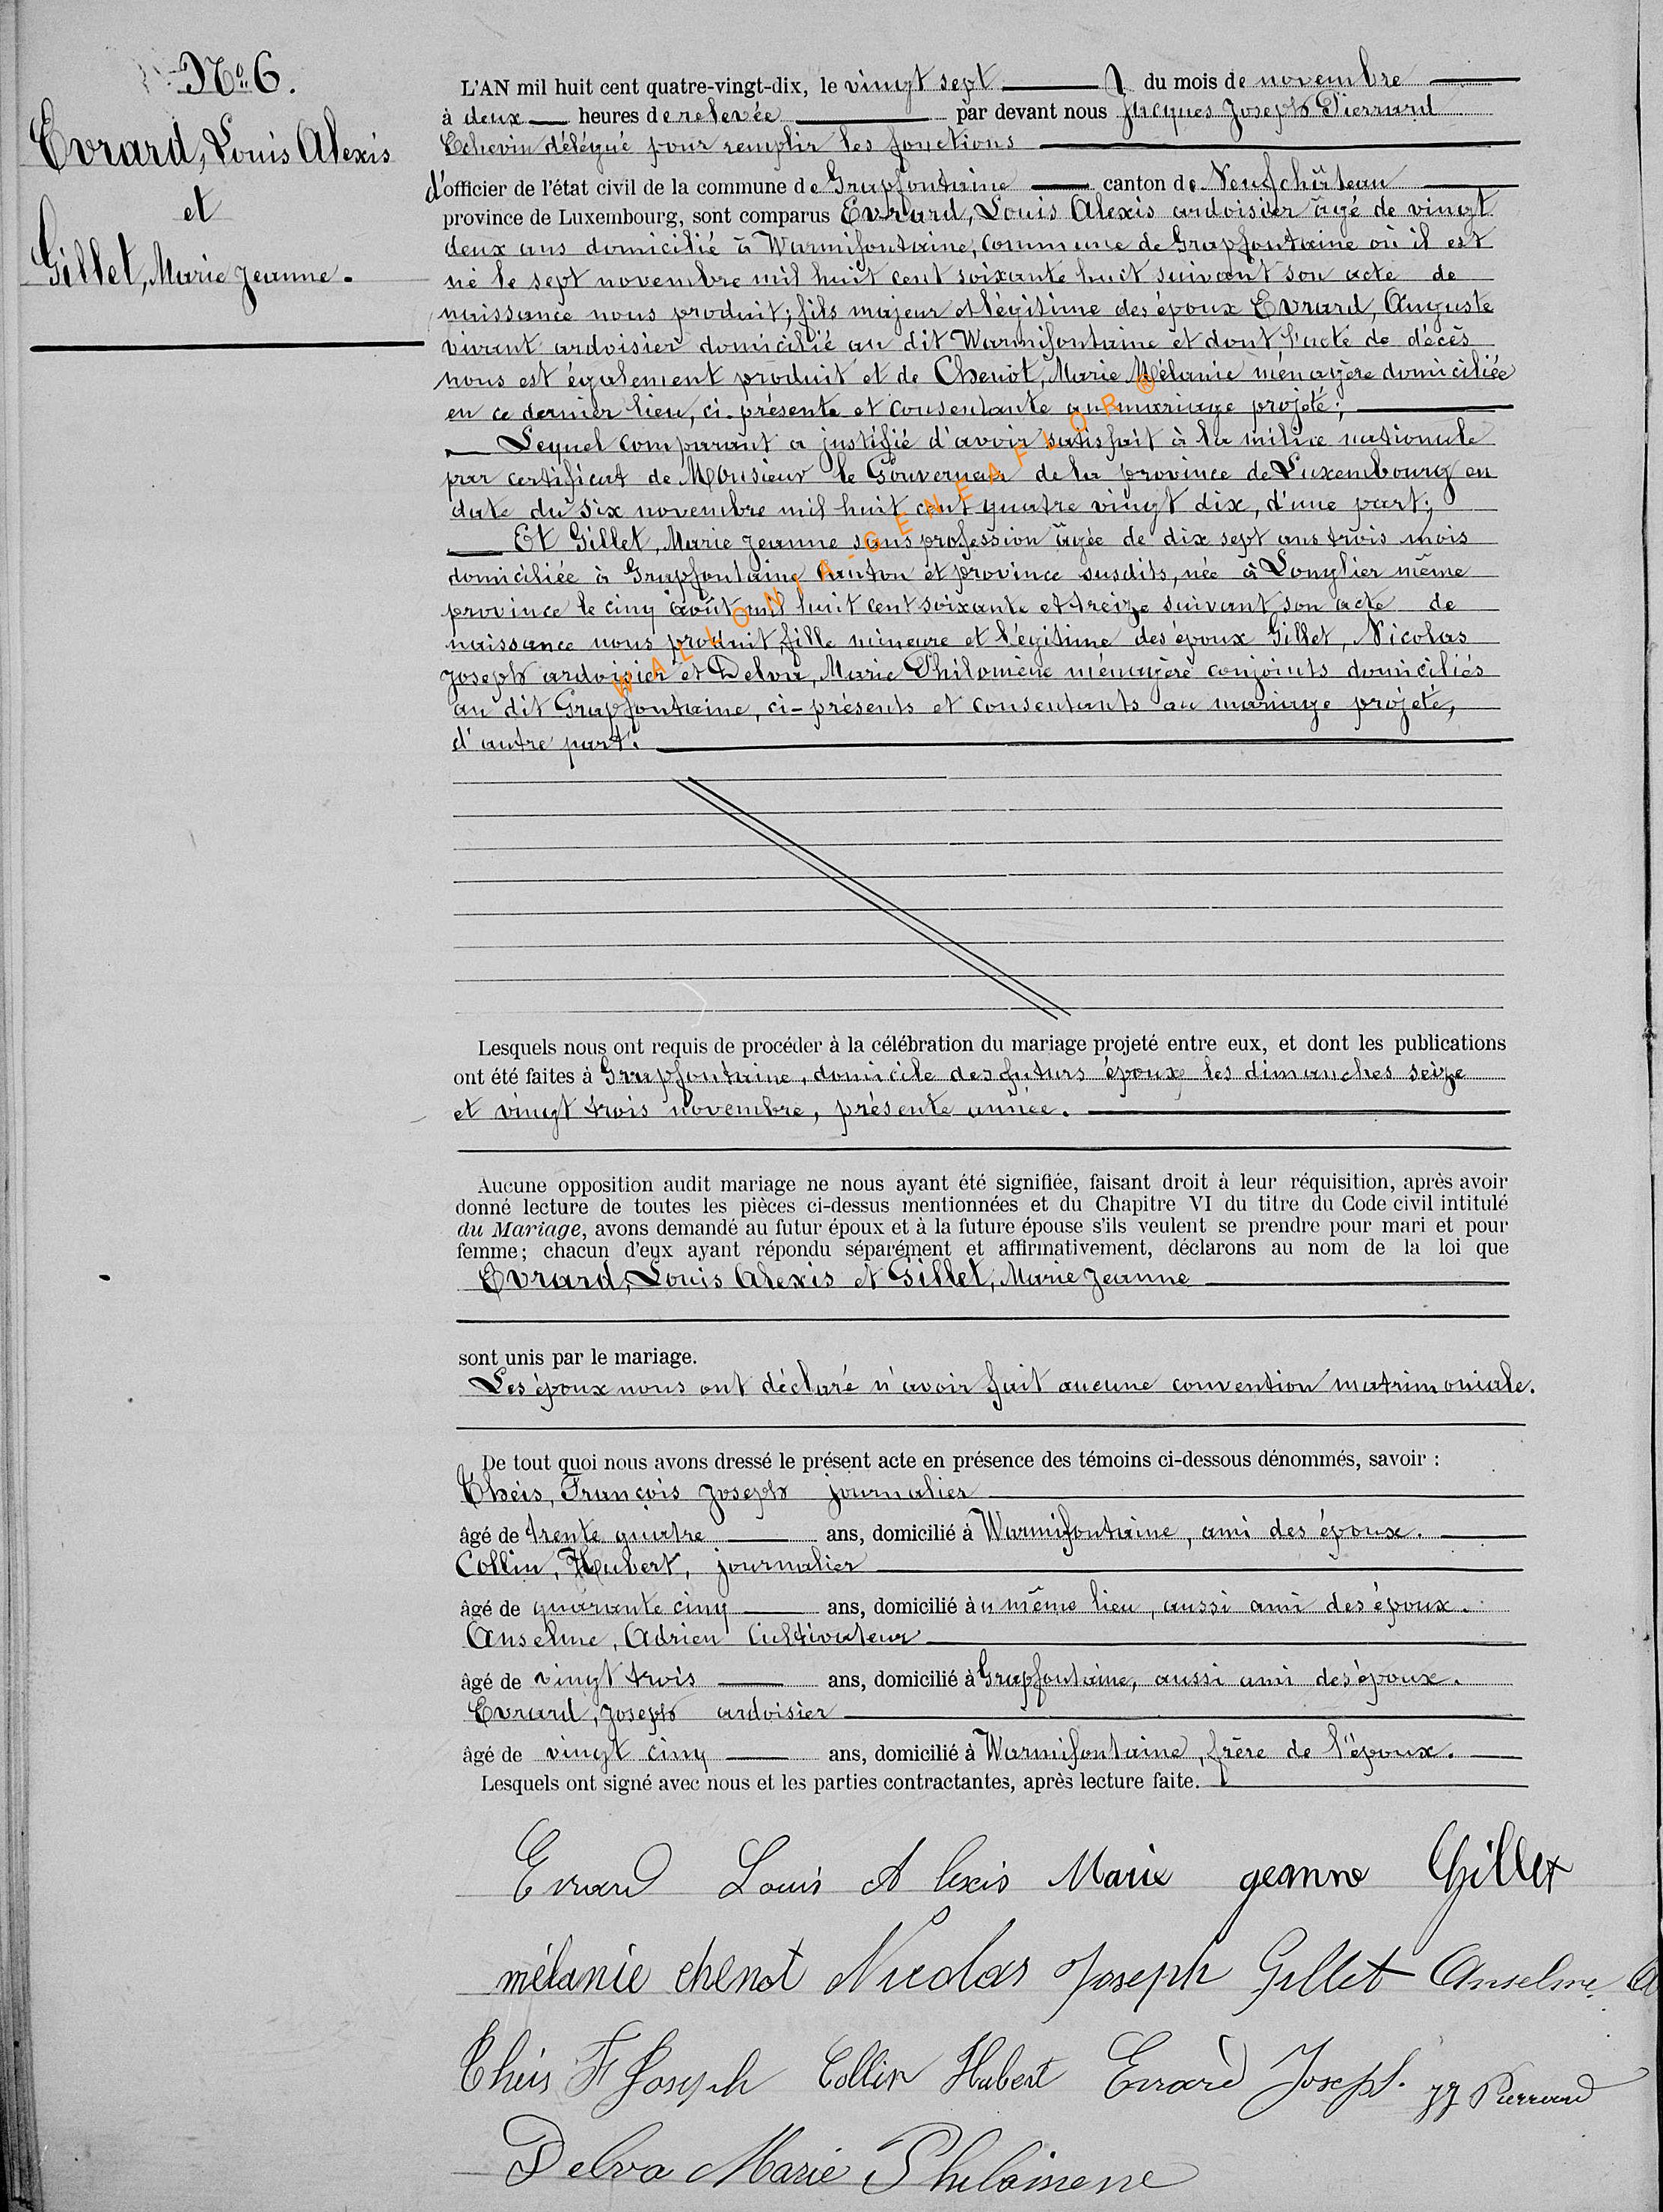 No 6.
Evrard, Louis Alexis
et
Gillet, Marie Jeanne.
L'AN mil huit cent quatre-vingt-dix, le vingt sept du mois de novembre
à deux heures de relevée par devant nous Jacques Joseph Pierrard
Echevin délégué pour remplir les fonctions
d'officier de l'état civil de la commune de Grapfontaine canton de Neufchâteau
province de Luxembourg, sont comparus Evrard, Louis Alexis ardoisier âgé de vingt
deux ans domicilié à Warmifontaine, commune de Grapfontaine où il est
né le sept novembre mil huit cent soixante huit suivant son acte de
naissance nous produit; fils majeur et légitime des époux Evrard, Auguste
vivant ardoisier domicilié au dit Warmifontaine et dont l'acte de décès
nous est également produit et de Chenot, Marie Mélanie ménagère domiciliée
en ce dernier lieu, ci-présente et consentante au mariage projeté;
Lequel comparant a justifié d'avoir satisfait à la milice nationale
par certificat de Monsieur le Gouverneur de la province de Luxembourg en
date du six novembre mil huit cent quatre vingt dix, d'une part;
Et Gillet, Marie Jeanne sans profession âgée de dix sept ans trois mois
domiciliée à Grapfontaine canton et province susdits, née à Longlier même
province le cinq août mil huit cent soixante et treize suivant son acte de
naissance nous produit, fille mineure et légitime des époux Gillet, Nicolas
Joseph ardoisier et Delva, Marie Philomène ménagère conjoints domiciliés
au dit Grapfontaine, ci-présents et consentants au mariage projeté,
d'autre part.
WALLONIA-GENEAFLOR®
Lesquels nous ont requis de procéder à la célébration du mariage projeté entre eux, et dont les publications
ont été faites à Grapfontaine, domicile des futurs époux les dimanches seize
et vingt trois novembre, présente année.
Aucune opposition audit mariage ne nous ayant été signifiée, faisant droit à leur réquisition, après avoir
donné lecture de toutes les pièces ci-dessus mentionnées et du Chapitre VI du titre du Code civil intitulé
du Mariage, avons demandé au futur époux et à la future épouse s'ils veulent se prendre pour mari et pour
femme; chacun d'eux ayant répondu séparément et affirmativement, déclarons au nom de la loi que
Evrard, Louis Alexis et Gillet, Marie Jeanne
sont unis par le mariage.
Les époux nous ont déclaré n'avoir fait aucune convention matrimoniale.
De tout quoi nous avons dressé le présent acte en présence des témoins ci-dessous dénommés, savoir :
Theis, François Joseph journalier
âgé de trente quatre ans, domicilié à Warmifontaine, ami des époux.
Collin, Hubert, journalier
âgé de quarante cinq ans, domicilié au même lieu, aussi ami des époux.
Anselme, Adrien cultivateur
âgé de vingt trois ans, domicilié à Grapfontaine, aussi ami des époux.
Evrard, Joseph ardoisier
âgé de vingt cinq ans, domicilié à Warmifontaine, frère de l'époux.
Lesquels ont signé avec nous et les parties contractantes, après lecture faite.
Evrard Louis Alexis Marie geanne Gillet
mélanie chenot Nicolas Joseph Gillet Anselme A
Theis F Joseph Collin Hubert Evrard Joseph. JJ Pierrard
Delva Marie Philomene